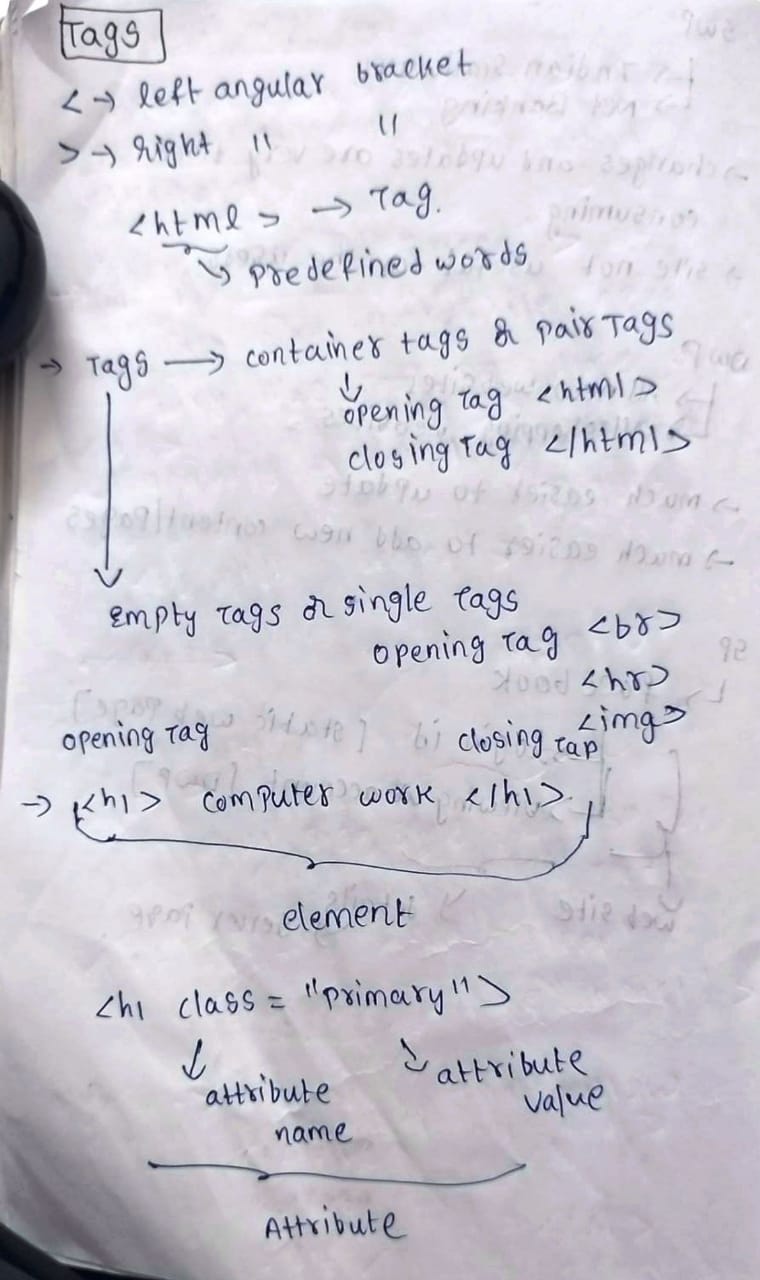 Tags
< → left angular bracket
> → right " "
<html> → Tag.
↳ predefined words
→ Tags → container tags & pair Tags
↓
opening Tag <html>
closing Tag </html>
Empty Tags or single Tags
opening Tag <br>
<hr>
<img>
opening Tag closing Tap
→ <h1> computer work </h1>.
element
<h1 class = "primary">
attribute name
attribute value
Attribute